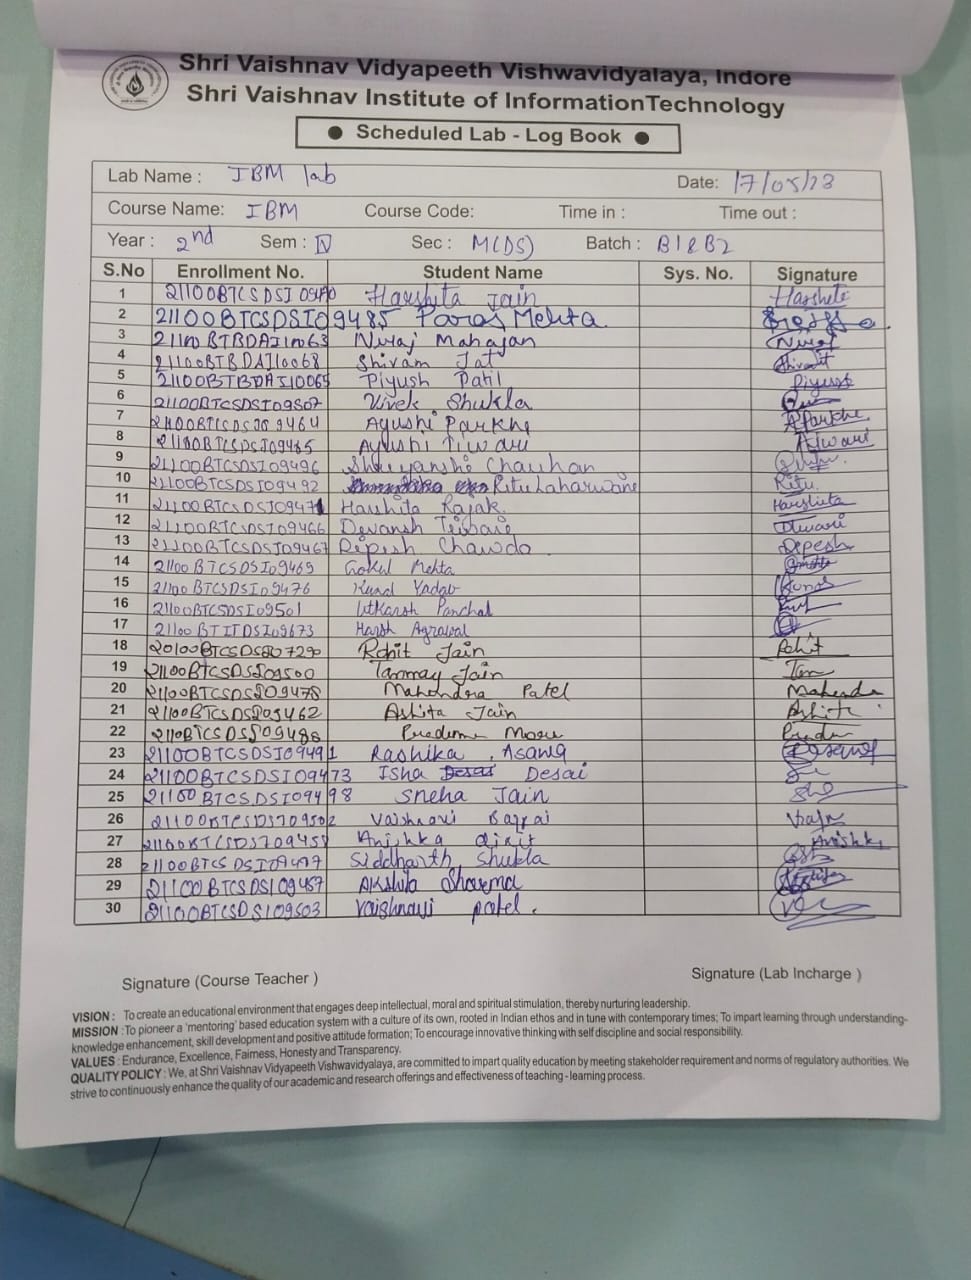 Shri Vaishnav Vidyapeeth Vishwavidyalaya, Indore
Shri Vaishnav Institute of Information Technology
● Scheduled Lab - Log Book ●
Lab Name : IBM lab Date: 17/05/23
Course Name: IBM Course Code: Time in : Time out :
Year : 2nd Sem : IV Sec : M(DS) Batch : B1&B2
S.No Enrollment No. Student Name Sys. No. Signature
1 Harshita Jain Harshita
2 21100BTCSDSI09485 Paras Mehta
3 21100BTBDAI10063 Niraj Mahajan Niraj
4 21100BTBDAI10068 Shivam Jat
5 21100BTBDAI10065 Piyush Patil Piyush
6 21100BTCSDSI09507 Vivek Shukla
7 21100BTCSDSI09464 Ayushi Parkhe AParkhe
8 Ayushi Tiwari ATiwari
9 21100BTCSDSI09496 Shreyanshi Chauhan
10 21100BTCSDSI09492 Ritu Laharwani Ritu
11 21100BTCSDSI09471 Harshita Rajak. Harshita
12 21100BTCSDSI09466 Devansh Tiwari DTiwari
13 21100BTCSDSI09467 Dipesh Chawda Dipesh
14 21100BTCSDSI09469 Gokul Mehta
15 21100BTCSDSI09476 Kunal Yadav
16 21100BTCSDSI09501 Utkarsh Panchal
17 21100BTITDSI09673 Harsh Agrawal
18 20100BTCSDSI07290 Rohit Jain Rohit
19 21100BTCSDSI09500 Tanmay Jain
20 21100BTCSDSI09478 Mahendra Patel Mahendra
21 21100BTCSDSI09462 Ashita Jain Ashita
22 21100BTCSDSI09488
23 21100BTCSDSI09491 Rashika Asawa
24 21100BTCSDSI09473 Isha Desai Desai
25 21100BTCSDSI09498 Sneha Jain
26 21100BTCSDSI09502 Vaishnavi Bajpai
27 Anishka Dixit Anishka
28 Siddharth Shukla
29 21100BTCSDSI09457 Akshita Sharma
30 21100BTCSDSI09503 Vaishnavi Patel.
Signature (Course Teacher ) Signature (Lab Incharge )
VISION : To create an educational environment that engages deep intellectual, moral and spiritual stimulation, thereby nurturing leadership.
MISSION : To pioneer a 'mentoring' based education system with a culture of its own, rooted in Indian ethos and in tune with contemporary times; To impart learning through understanding-
knowledge enhancement, skill development and positive attitude formation; To encourage innovative thinking with self discipline and social responsibility.
VALUES : Endurance, Excellence, Fairness, Honesty and Transparency.
QUALITY POLICY : We, at Shri Vaishnav Vidyapeeth Vishwavidyalaya, are committed to impart quality education by meeting stakeholder requirement and norms of regulatory authorities. We
strive to continuously enhance the quality of our academic and research offerings and effectiveness of teaching - learning process.